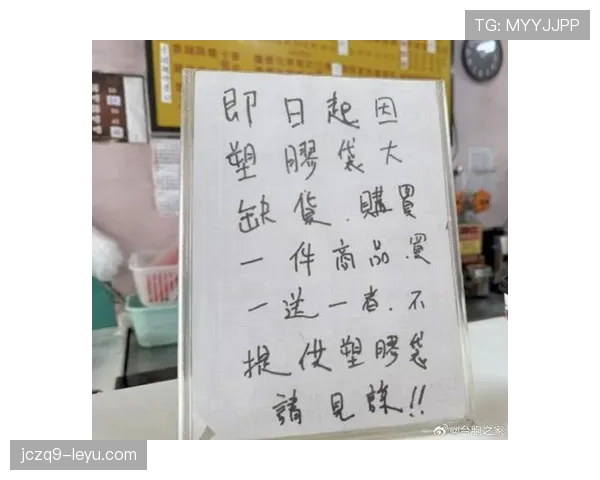 TG: MYYJJPP
即日起因
塑膠袋大
缺貨.購買
一件商品買
一送一者.不
提供塑膠袋
請見諒!!
@台胞之家
jczq9-leyu.com